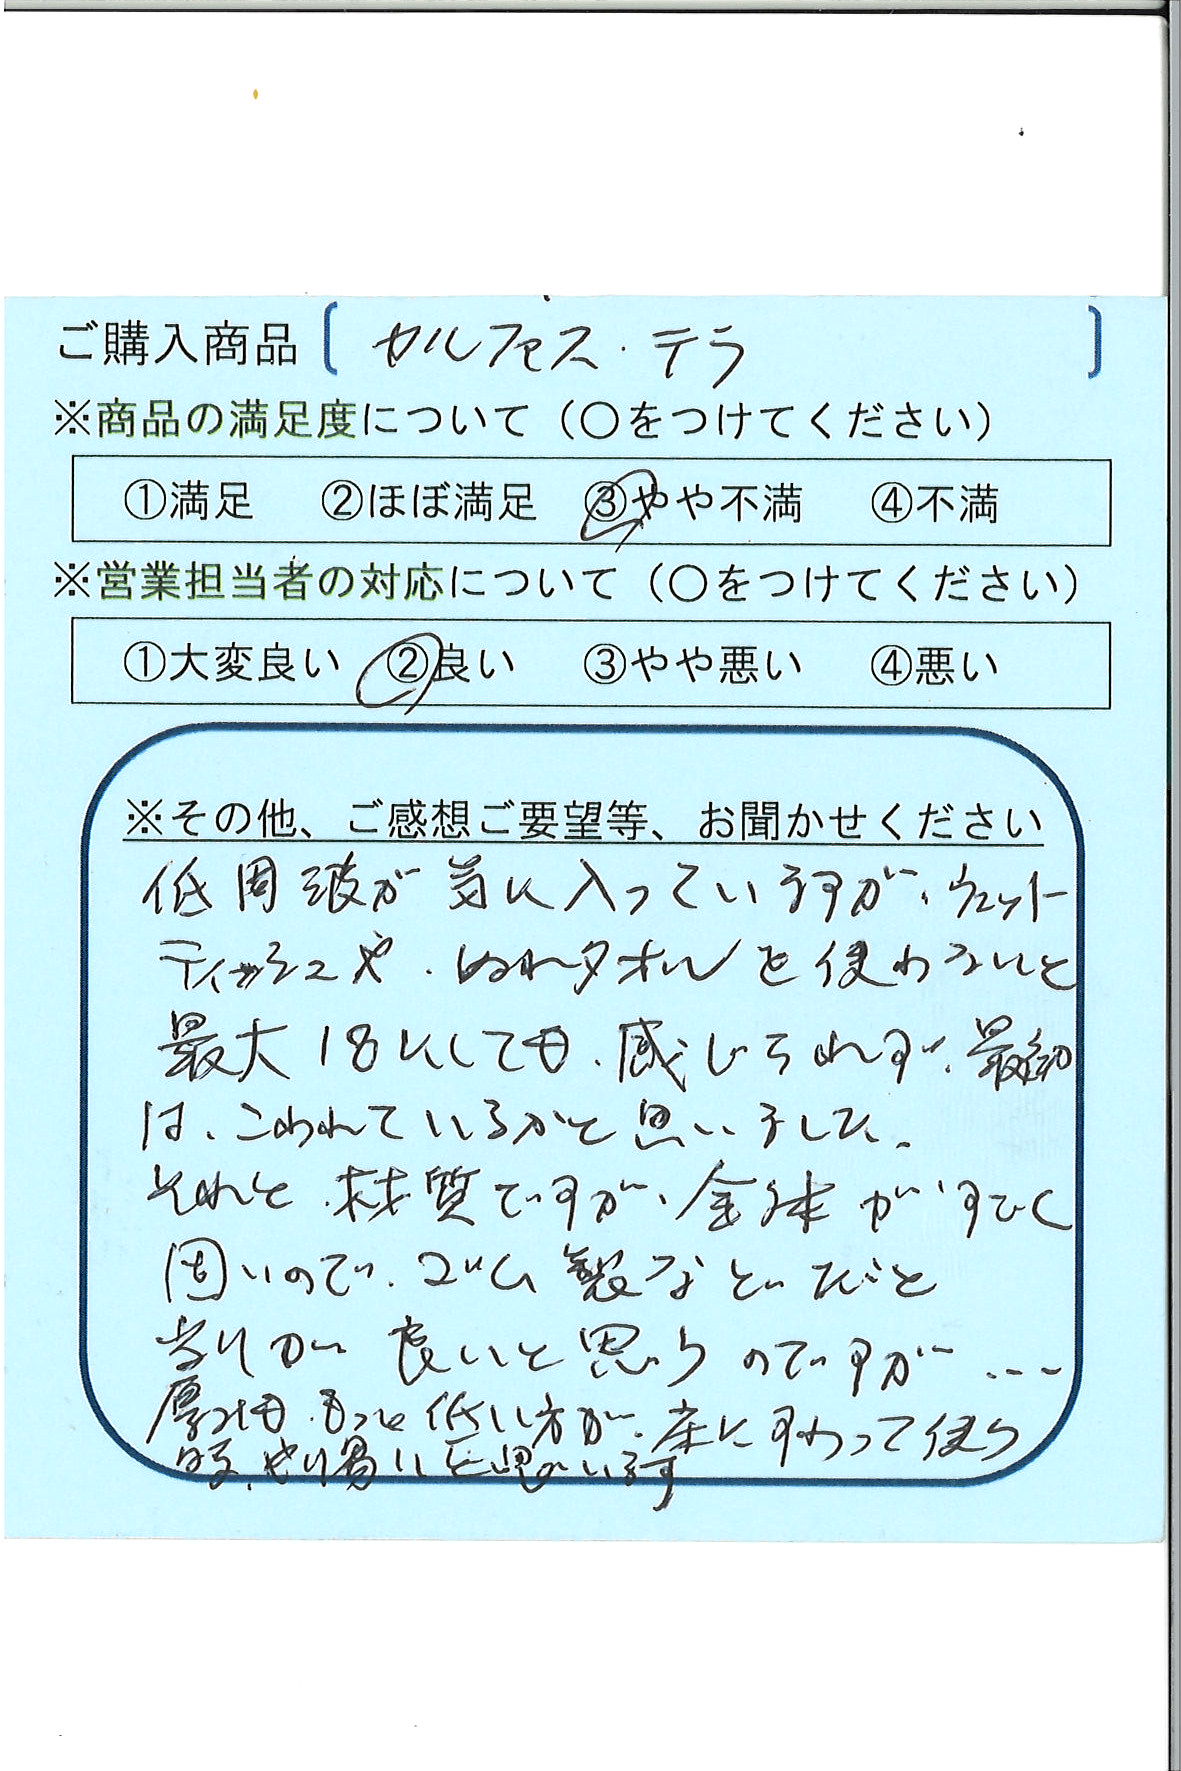 ご購入商品〔 セルフェス・テラ 〕
※商品の満足度について（〇をつけてください）
①満足 ②ほぼ満足 ③やや不満 ④不満
※営業担当者の対応について（〇をつけてください）
①大変良い ②良い ③やや悪い ④悪い
※その他、ご感想ご要望等、お聞かせください
低周波が気に入っていますが、ウェット
ティッシュや、ぬれタオルを使わないと
最大18にしても、感じられず、最初
は、こわれているかと思いました。
それと、材質ですが、全体がすごく
固いので、ゴム製などだと
当りが良いと思うのですが…
厚みも、もっと低い方が、床にすわって使う
時、やり易いと思います